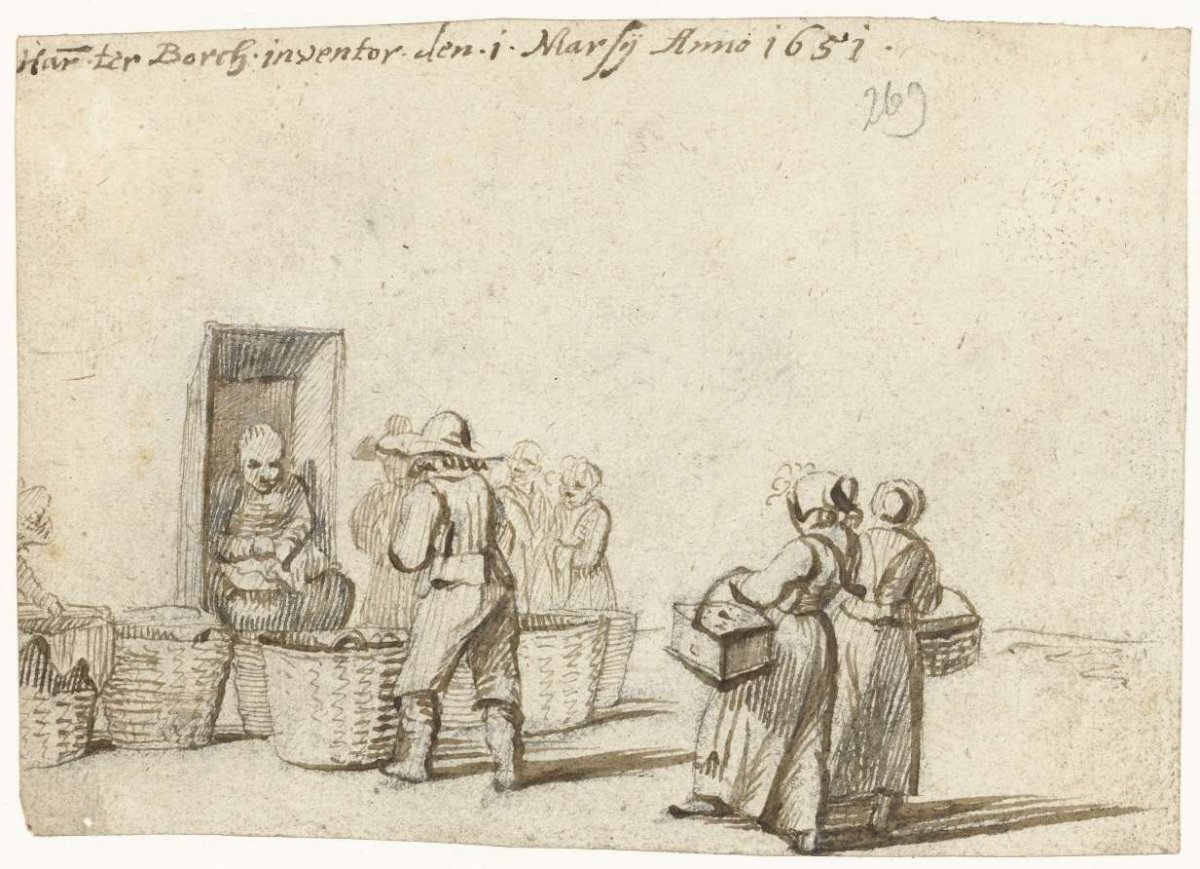 Har̄ ter Borch · inventor · den · i · Marsij Anno 1651 .
269